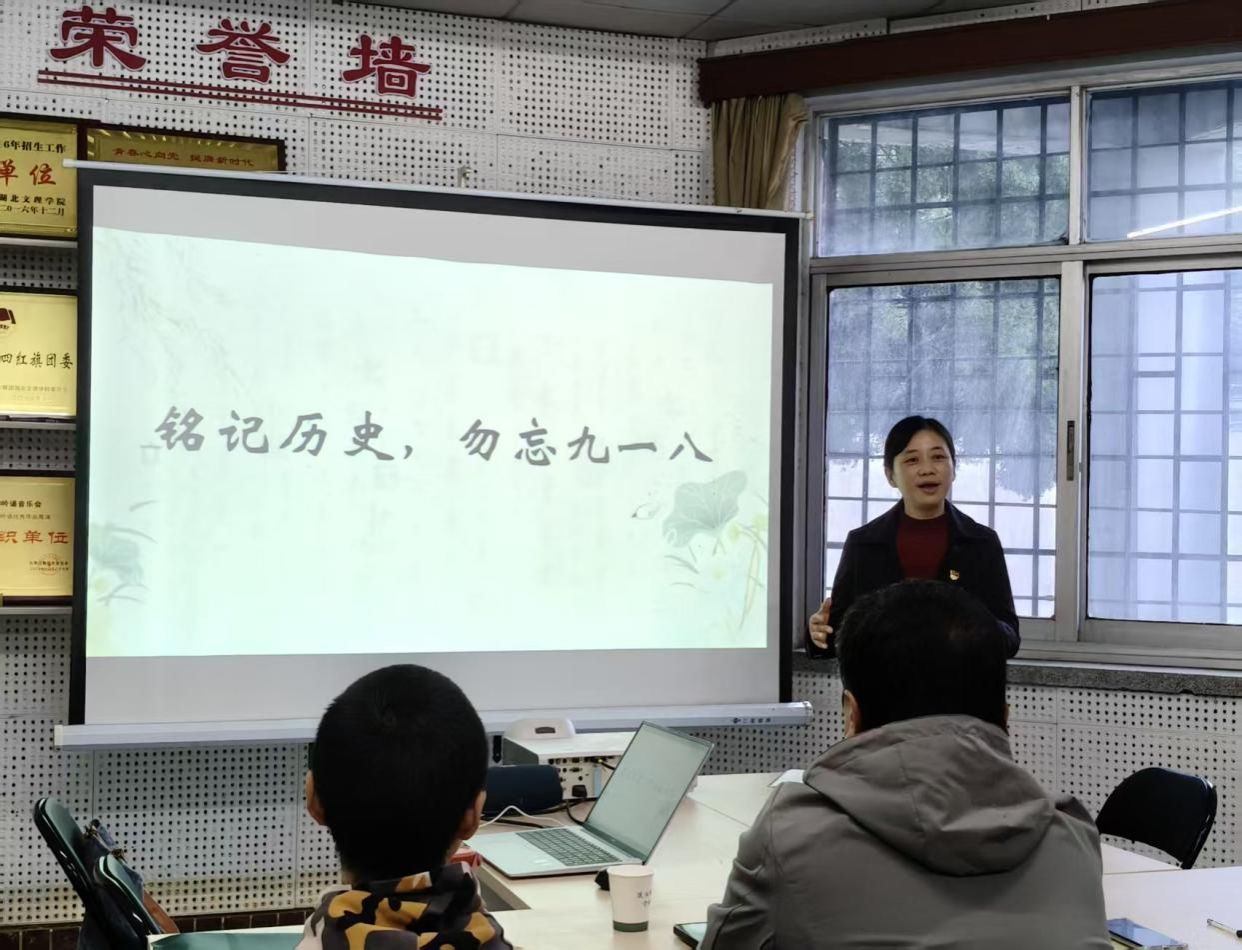 荣誉墙
6年招生工作
单位
湖北文理学院
二〇一六年十二月
青春心向党 强国新时代
四红旗团委
吟诵音乐会
织单位
铭记历史，勿忘九一八